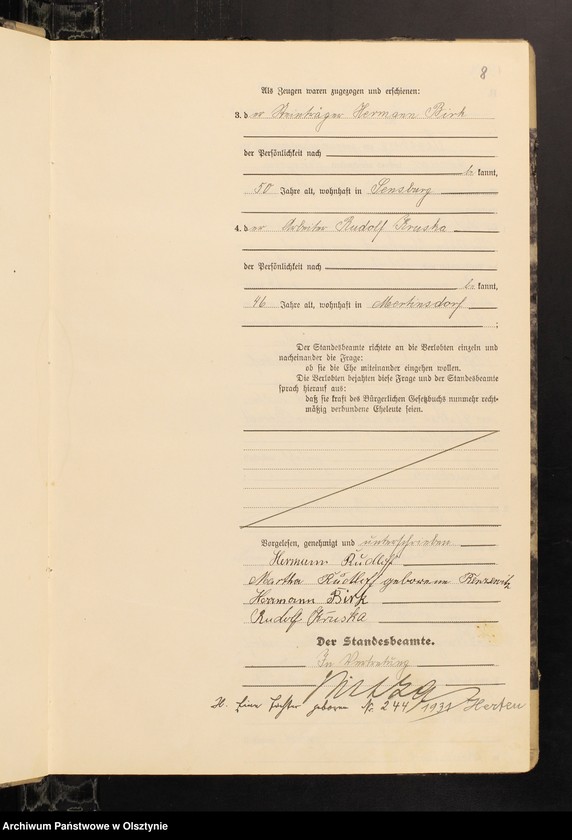 8
Als Zeugen waren zugezogen und erschienen:
3. d er Steinträger Hermann Birk
der Persönlichkeit nach
be kannt,
50 Jahre alt, wohnhaft in Sensburg
4. d er Arbeiter Rudolf Kruska
der Persönlichkeit nach
be kannt,
46 Jahre alt, wohnhaft in Mertinsdorf
;
Der Standesbeamte richtete an die Verlobten einzeln und
nacheinander die Frage:
ob sie die Ehe miteinander eingehen wollen.
Die Verlobten bejahten diese Frage und der Standesbeamte
sprach hierauf aus:
daß sie kraft des Bürgerlichen Gesetzbuchs nunmehr recht-
mäßig verbundene Eheleute seien.
Vorgelesen, genehmigt und unterschrieben
Hermann Rudloff
Martha Rudloff geborene
Hermann Birk
Rudolf Kruska
Der Standesbeamte.
In Vertretung
Eine Tochter geboren Nr. 244/1931 Herten
Archiwum Państwowe w Olsztynie